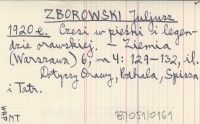 ZBOROWSKI Juljusz
1920 e. Czesi w pieśni i legen-
dzie orawskiej. – Ziemia
(Warszawa) 6, nr 4: 129–132, il.
Dotyczy Orawy, Podhala, Spisza
i Tatr.
WMP
MT